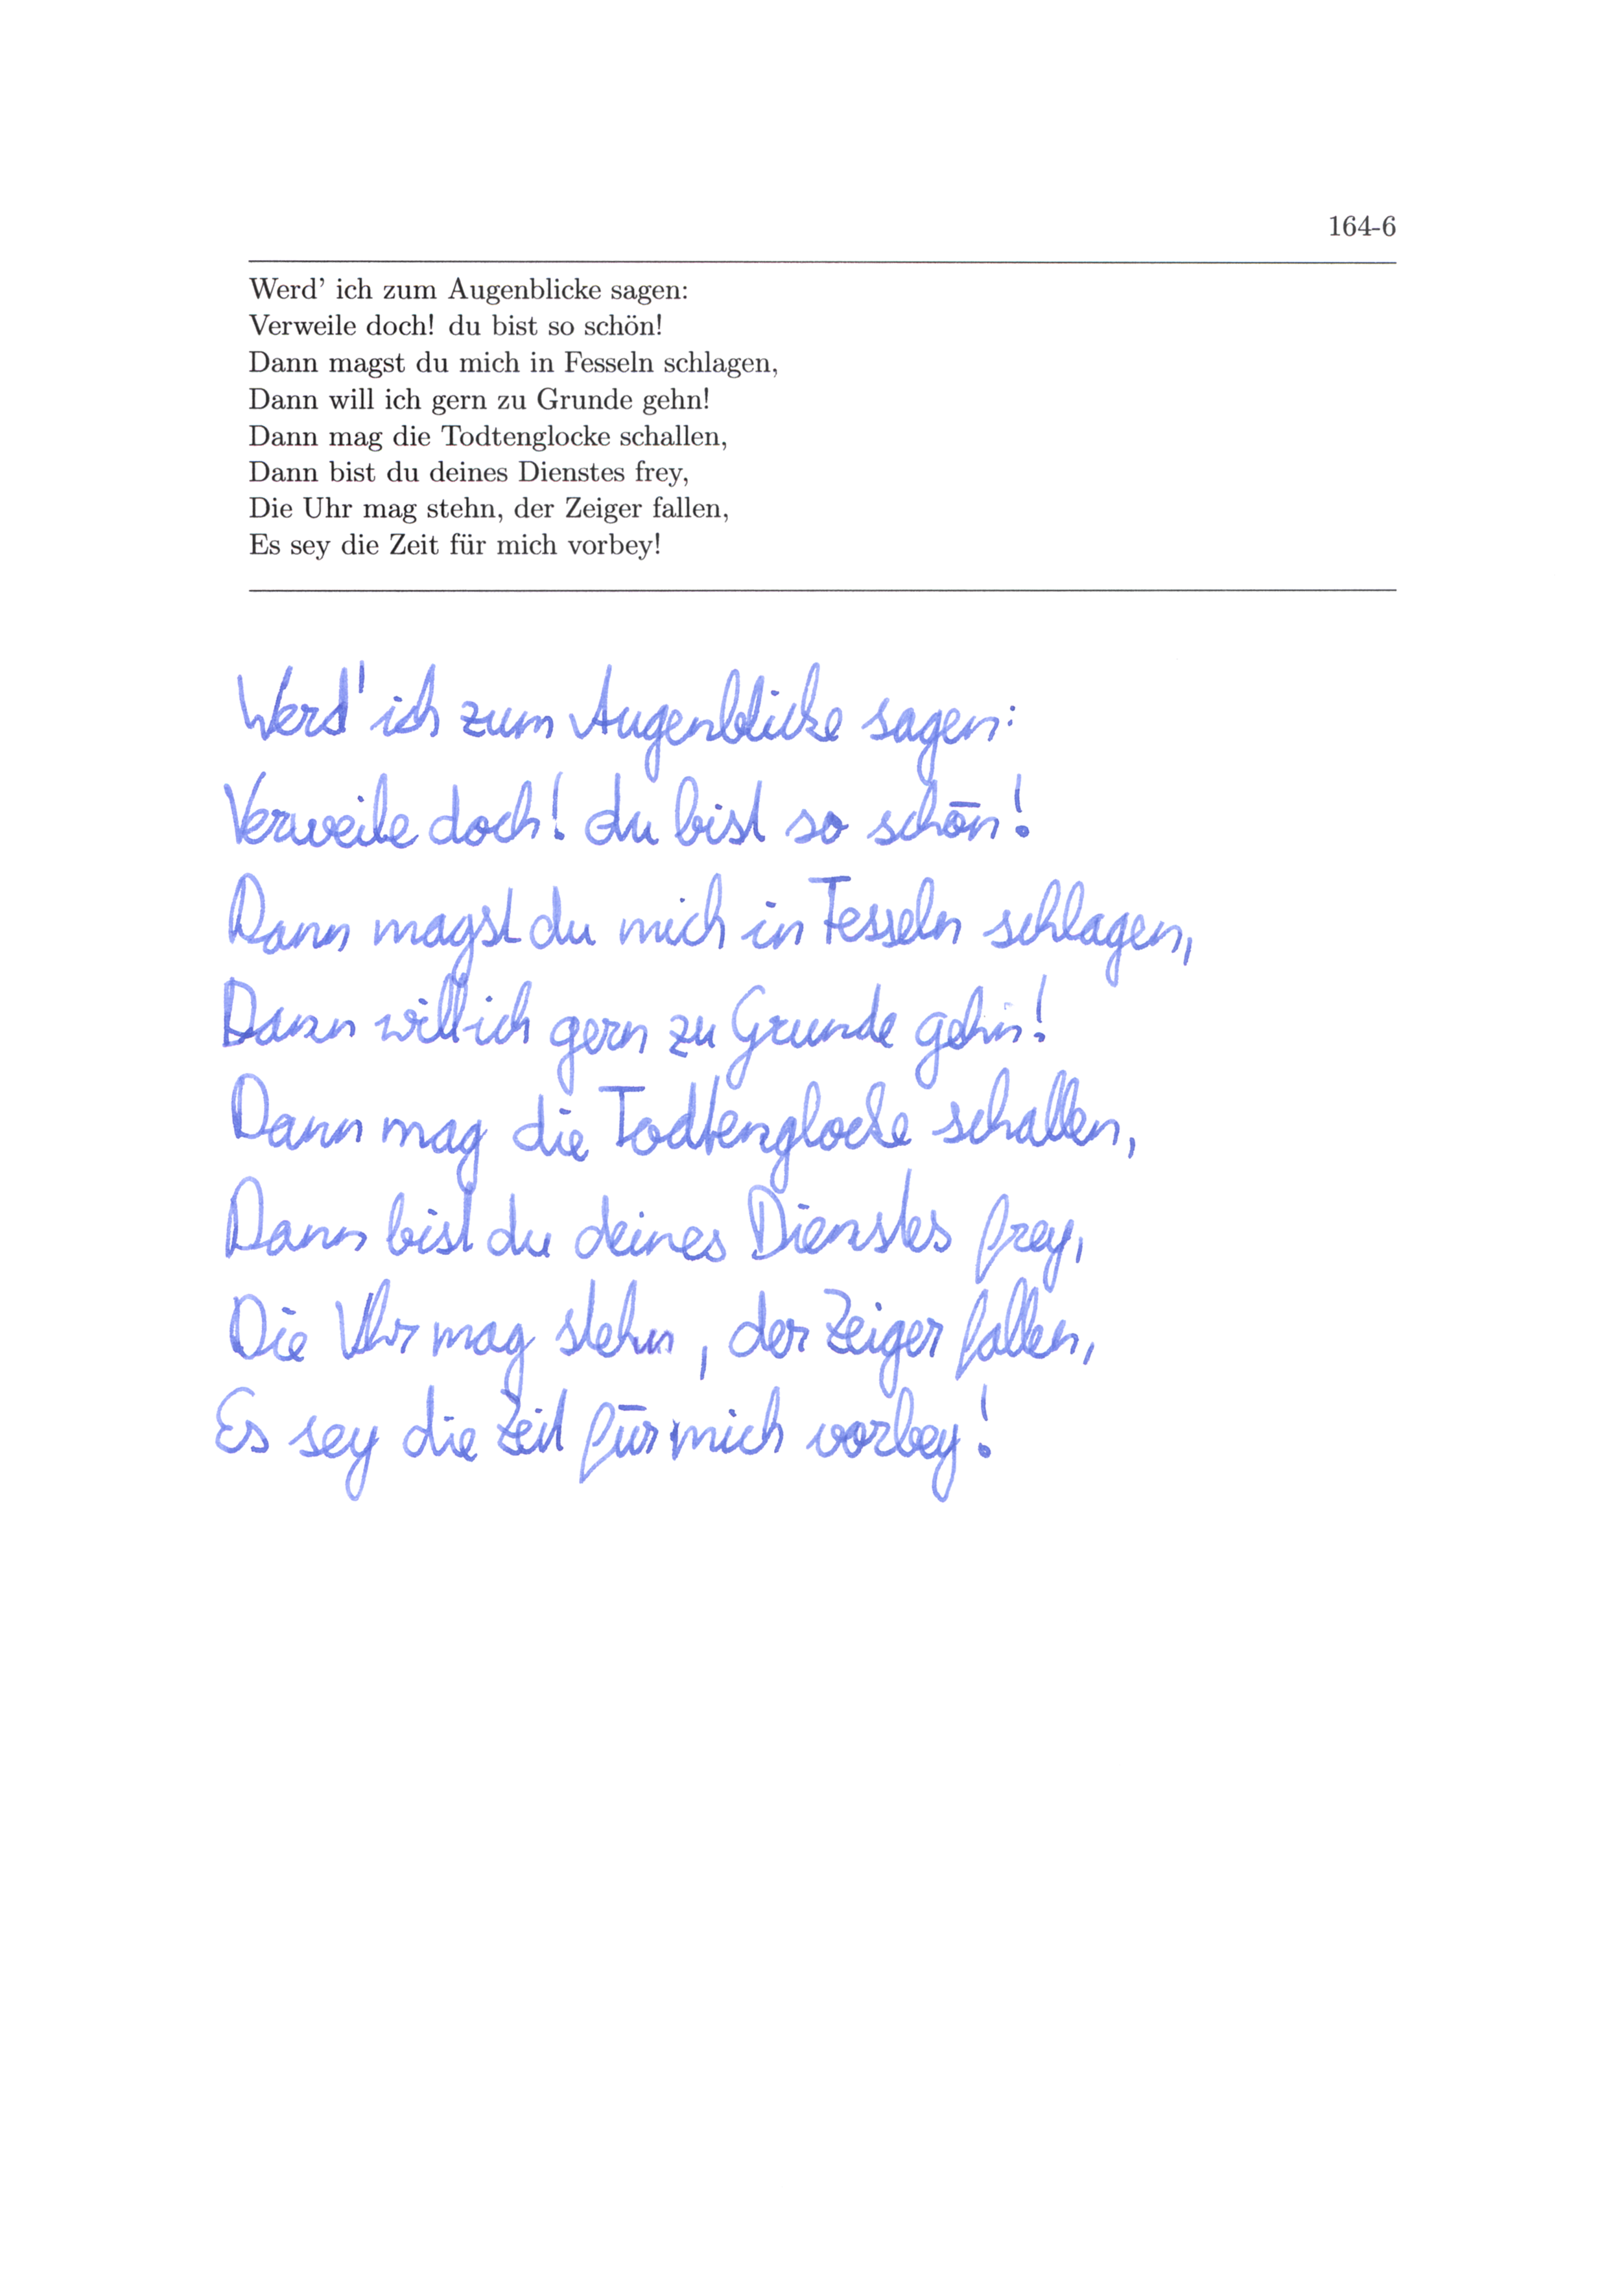 164-6
Werd' ich zum Augenblicke sagen:
Verweile doch! du bist so schön!
Dann magst du mich in Fesseln schlagen,
Dann will ich gern zu Grunde gehn!
Dann mag die Todtenglocke schallen,
Dann bist du deines Dienstes frey,
Die Uhr mag stehn, der Zeiger fallen,
Es sey die Zeit für mich vorbey!
Werd' ich zum Augenblicke sagen:
Verweile doch! du bist so schön!
Dann magst du mich in Fesseln schlagen,
Dann will ich gern zu Grunde gehn!
Dann mag die Todtenglocke schallen,
Dann bist du deines Dienstes frey,
Die Uhr mag stehn, der Zeiger fallen,
Es sey die Zeit für mich vorbey!